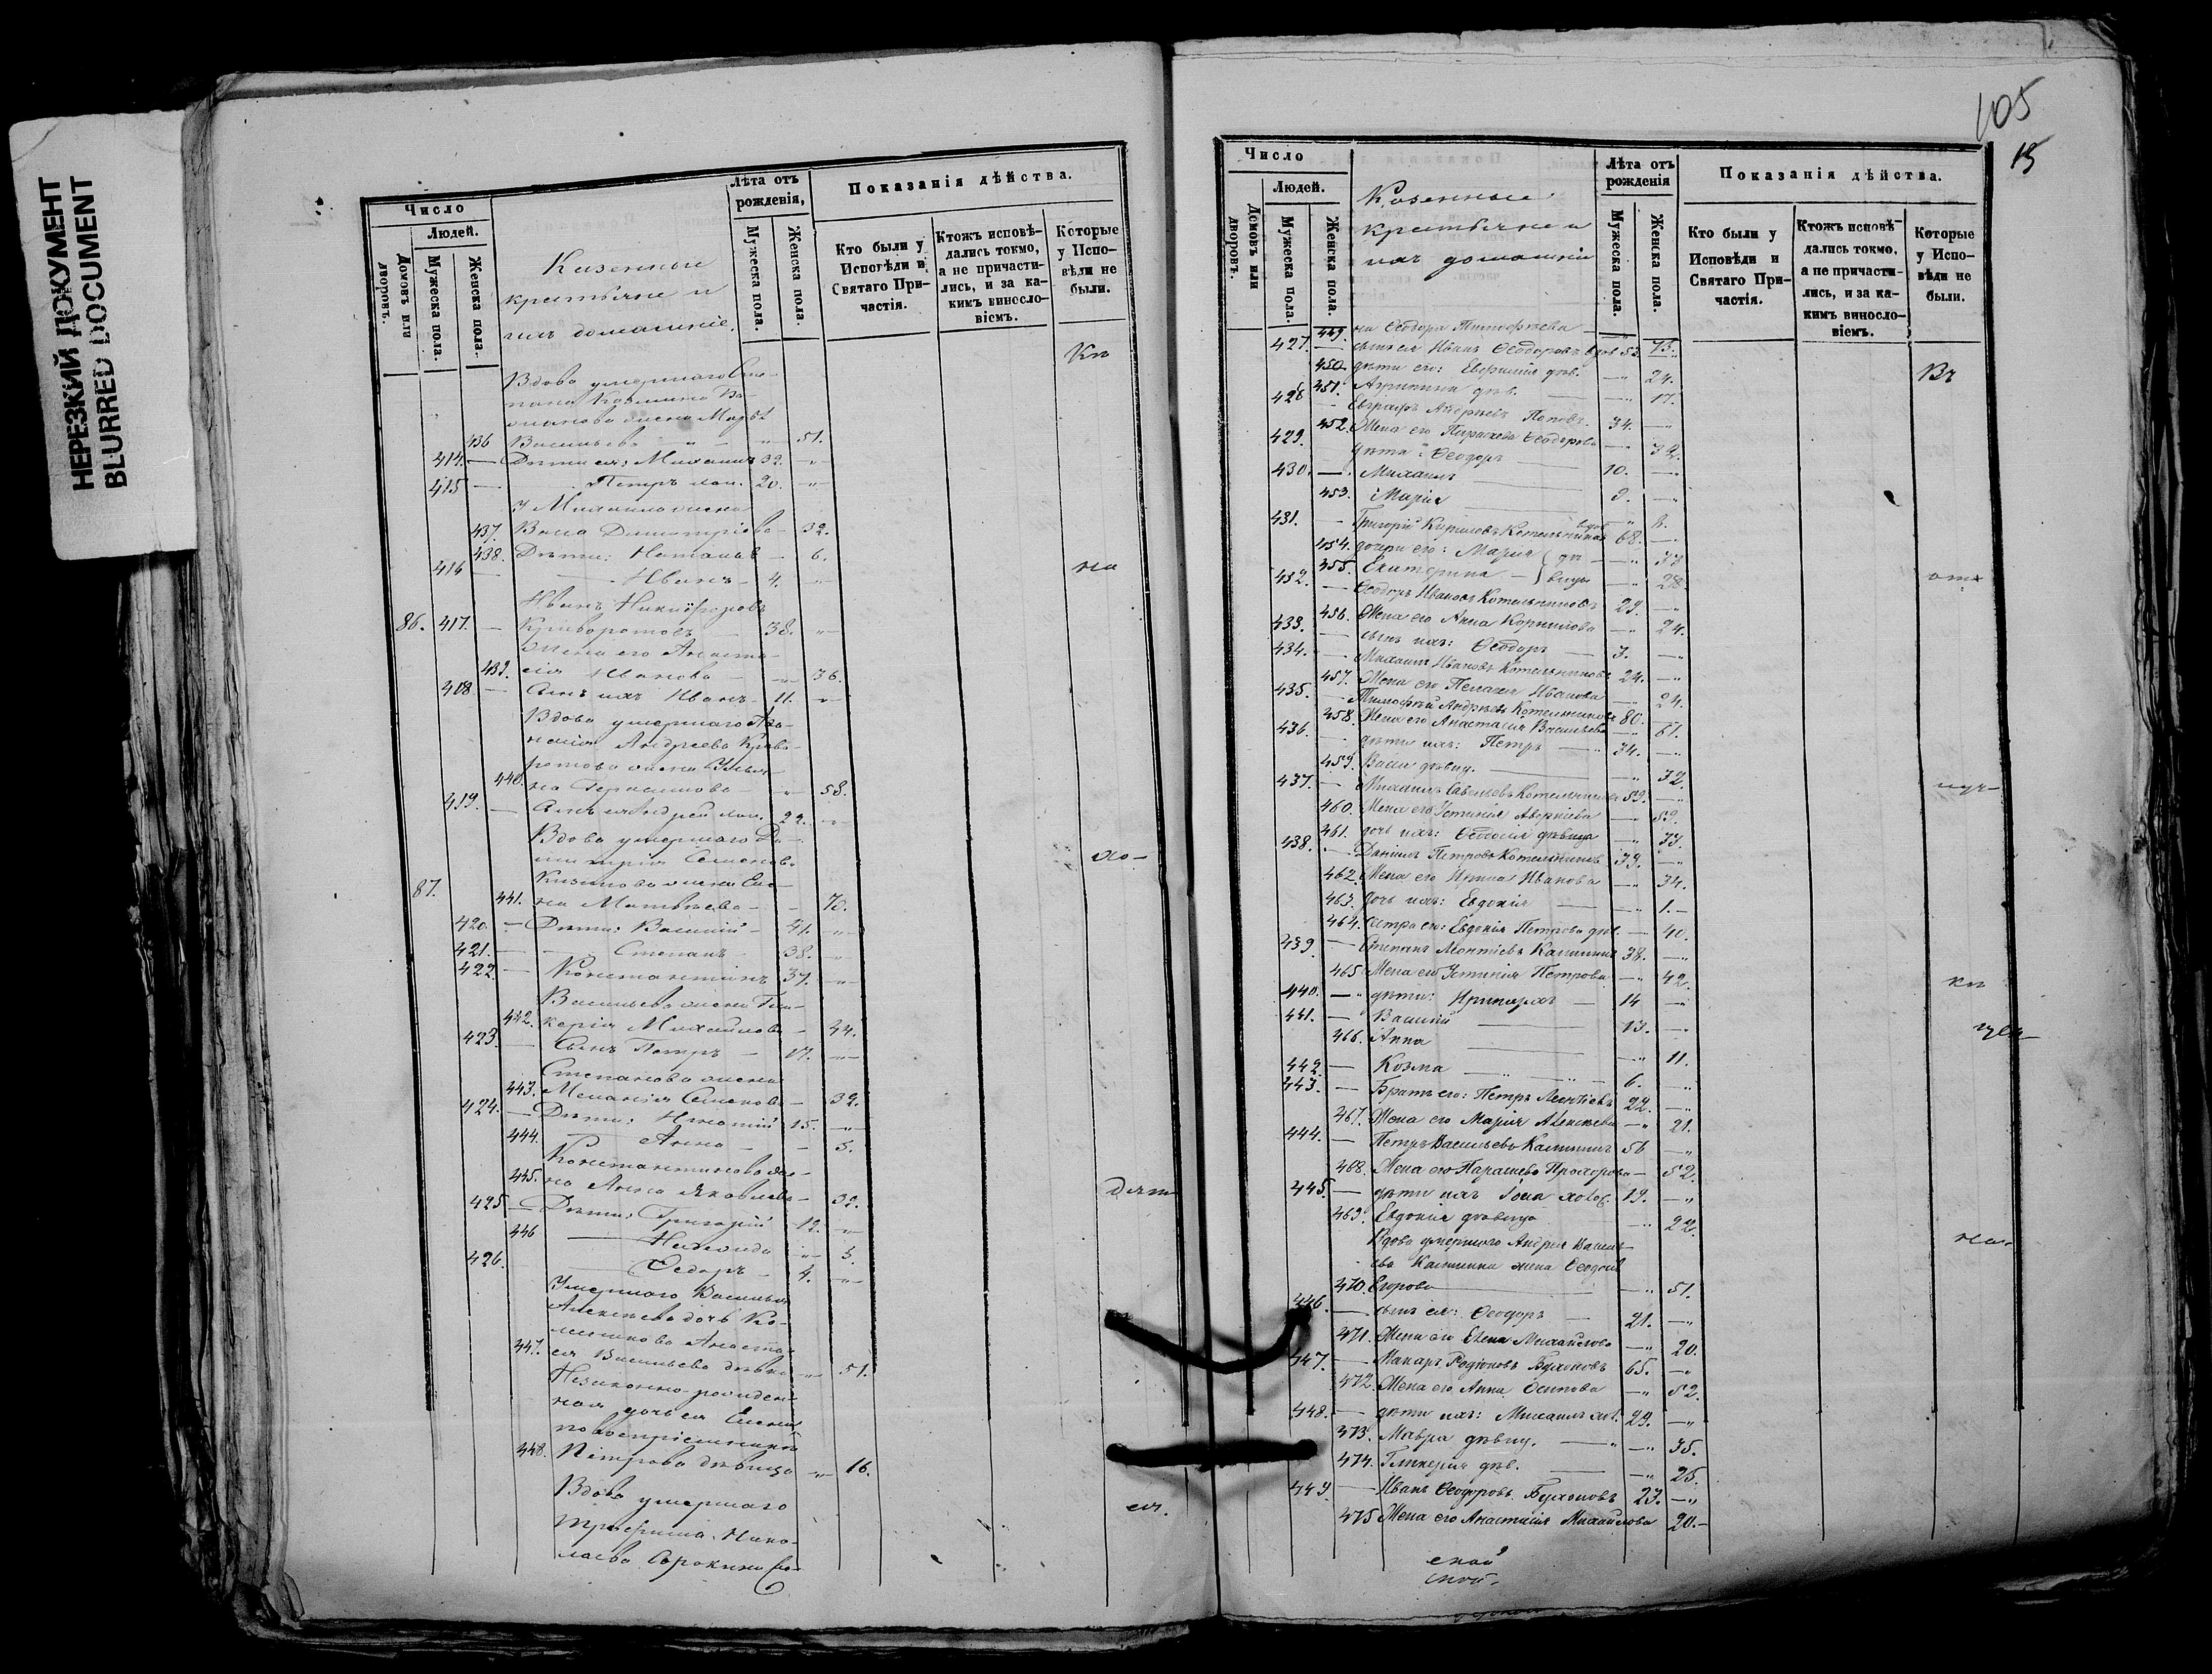 НЕРЕЗКИЙ ДОКУМЕНТ
BLURRED DOCUMENT
Число
Людей.
Домовъ или дворовъ.
Мужеска пола.
Женска пола.
Казенные
крестьяне и
ихъ домашніе.
Лѣта отъ рожденія,
Мужеска пола.
Женска пола.
Показанія дѣйства.
Кто были у Исповѣди и Святаго Причастія.
Ктожъ исповѣдались токмо, а не причастились, и за какимъ винословіемъ.
Которые у Исповѣди не были.
Вдова умершаго
жена Марѳа
436 Васильева 51.
414. — Дѣти ея: Михаилъ 32.
415 — Петръ хол. 20.
У Михаила жена
437. Васса Димитріева 32.
438. Дѣти: Наталья 6.
416 — Иванъ 4.
Иванъ Никифоровъ
86. 417. — Криворотовъ 38.
Жена его Анаста-
439. сія Иванова 36.
408 — Сынъ ихъ Иванъ 11.
Вдова умершаго
Андреева Криво-
ротова жена Улья-
440. на Герасимова 58.
419. — Сынъ ея Андрей хол. 22.
Вдова умершаго Ди-
митрія Семенова
жена Еле-
87. 441. на Матвѣева 70.
420. — Дѣти: Василій 41.
421. — Степанъ 38.
422. — Константинъ 37.
Васильева жена Гли-
442. керія Михайлова 44.
423. — Сынъ Петръ 17.
Степанова жена
443. Меланія Семенова 32.
424. — Дѣти: Игнатій 15.
444. Анна 5.
Константинова же-
445. на Анна Яковлева 32.
425 — Дѣти: Григорій 12.
446 5.
426. Ѳедоръ 4.
Умершаго Василья
Алексѣева дочь Ко-
Анаста-
447. сія Васильева дѣвка 51.
Незаконно-рожден-
ная дочь ея Елена,
по воспріемнику
448. Петрова дѣвица 16.
Вдова умершаго
Трифона Нико-
лаева Сорокина
105
15
Число
Людей.
Домовъ или дворовъ.
Мужеска пола.
Женска пола.
Казенные
крестьяне и
ихъ домашніе
Лѣта отъ рожденія
Мужеска пола.
Женска пола.
Показанія дѣйства.
Кто были у Исповѣди и Святаго Причастія.
Ктожъ исповѣдались токмо, а не причастились, и за какимъ винословіемъ.
Которые у Исповѣди не были.
449. на Ѳеодора Тимофѣева 73.
427. — сынъ ея Иванъ Ѳеодоровъ вдов 53.
450. дѣти его: Евфимія дѣв. 24.
451. Агрипина дѣв. 17.
428 — Евграфъ Андреевъ Поповъ 34.
452. Жена его Параскева Ѳеодорова 32.
429. дѣти: Ѳеодоръ 10.
430. — Михаилъ 9.
453. Марія 8.
431. — Григорій Кириловъ Котельниковъ вдов 68.
454. дочери его: Марія 33
455. Екатерина дѣвицы 28.
432. — Ѳеодоръ Ивановъ Котельниковъ 29.
456. Жена его Анна Корнилова 24.
433. — сынъ ихъ: Ѳеодоръ 3.
434. — Михаилъ Ивановъ Котельниковъ 24.
457. Жена его Пелагея Иванова 24.
435. — Тимофѣй Андреевъ Котельниковъ 80.
458. Жена его Анастасія Васильева 61.
436. — дѣти ихъ: Петръ 34.
459. Васса дѣвиц. 32.
437. — Михаилъ Савельевъ Котельников 59.
460. Жена его Устинія Аверкіева 59.
461. дочь ихъ: Ѳеодосія дѣвица 33.
438. — Даніилъ Петровъ Котельниковъ 39.
462. Жена его Ирина Иванова 34.
463. дочь ихъ: Евдокія 1.
464. Сестра его: Евдокія Петрова дѣв. 40.
439 — Степанъ Леонтіевъ Калининъ 38.
465 Жена его Устинія Петрова 42.
440. — дѣти: Иринархъ 14
441. — Василій 13.
466. Анна 11.
442. — Козма 6.
443. — Братъ его: Петръ Леонтіевъ 22.
467. Жена его Марія Алексѣева 21.
444. — Петръ Васильевъ Калининъ 56
468. Жена его Параскева Прохорова 52.
445. — дѣти ихъ Іона холос. 19.
469. Евдокія дѣвица 22.
Вдова умершаго Андрея Василь-
ева Калинина жена Ѳеодосія
470. Егорова 51.
446. — сынъ ея: Ѳеодоръ 21.
471. Жена его Елена Михайлова 20.
447. — Макаръ Родіоновъ Бухоновъ 65.
472. Жена его Анна Осипова 52.
448. — дѣти ихъ: Михаилъ хол. 29.
473. Мавра дѣвиц. 35.
474. Гликерія дѣв. 25.
449 — Иванъ Ѳеодоровъ Бухоновъ 23.
475 Жена его Анастасія Михайлова 20.